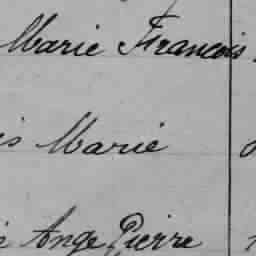 Marie Francois
is Marie
Ange Pierre